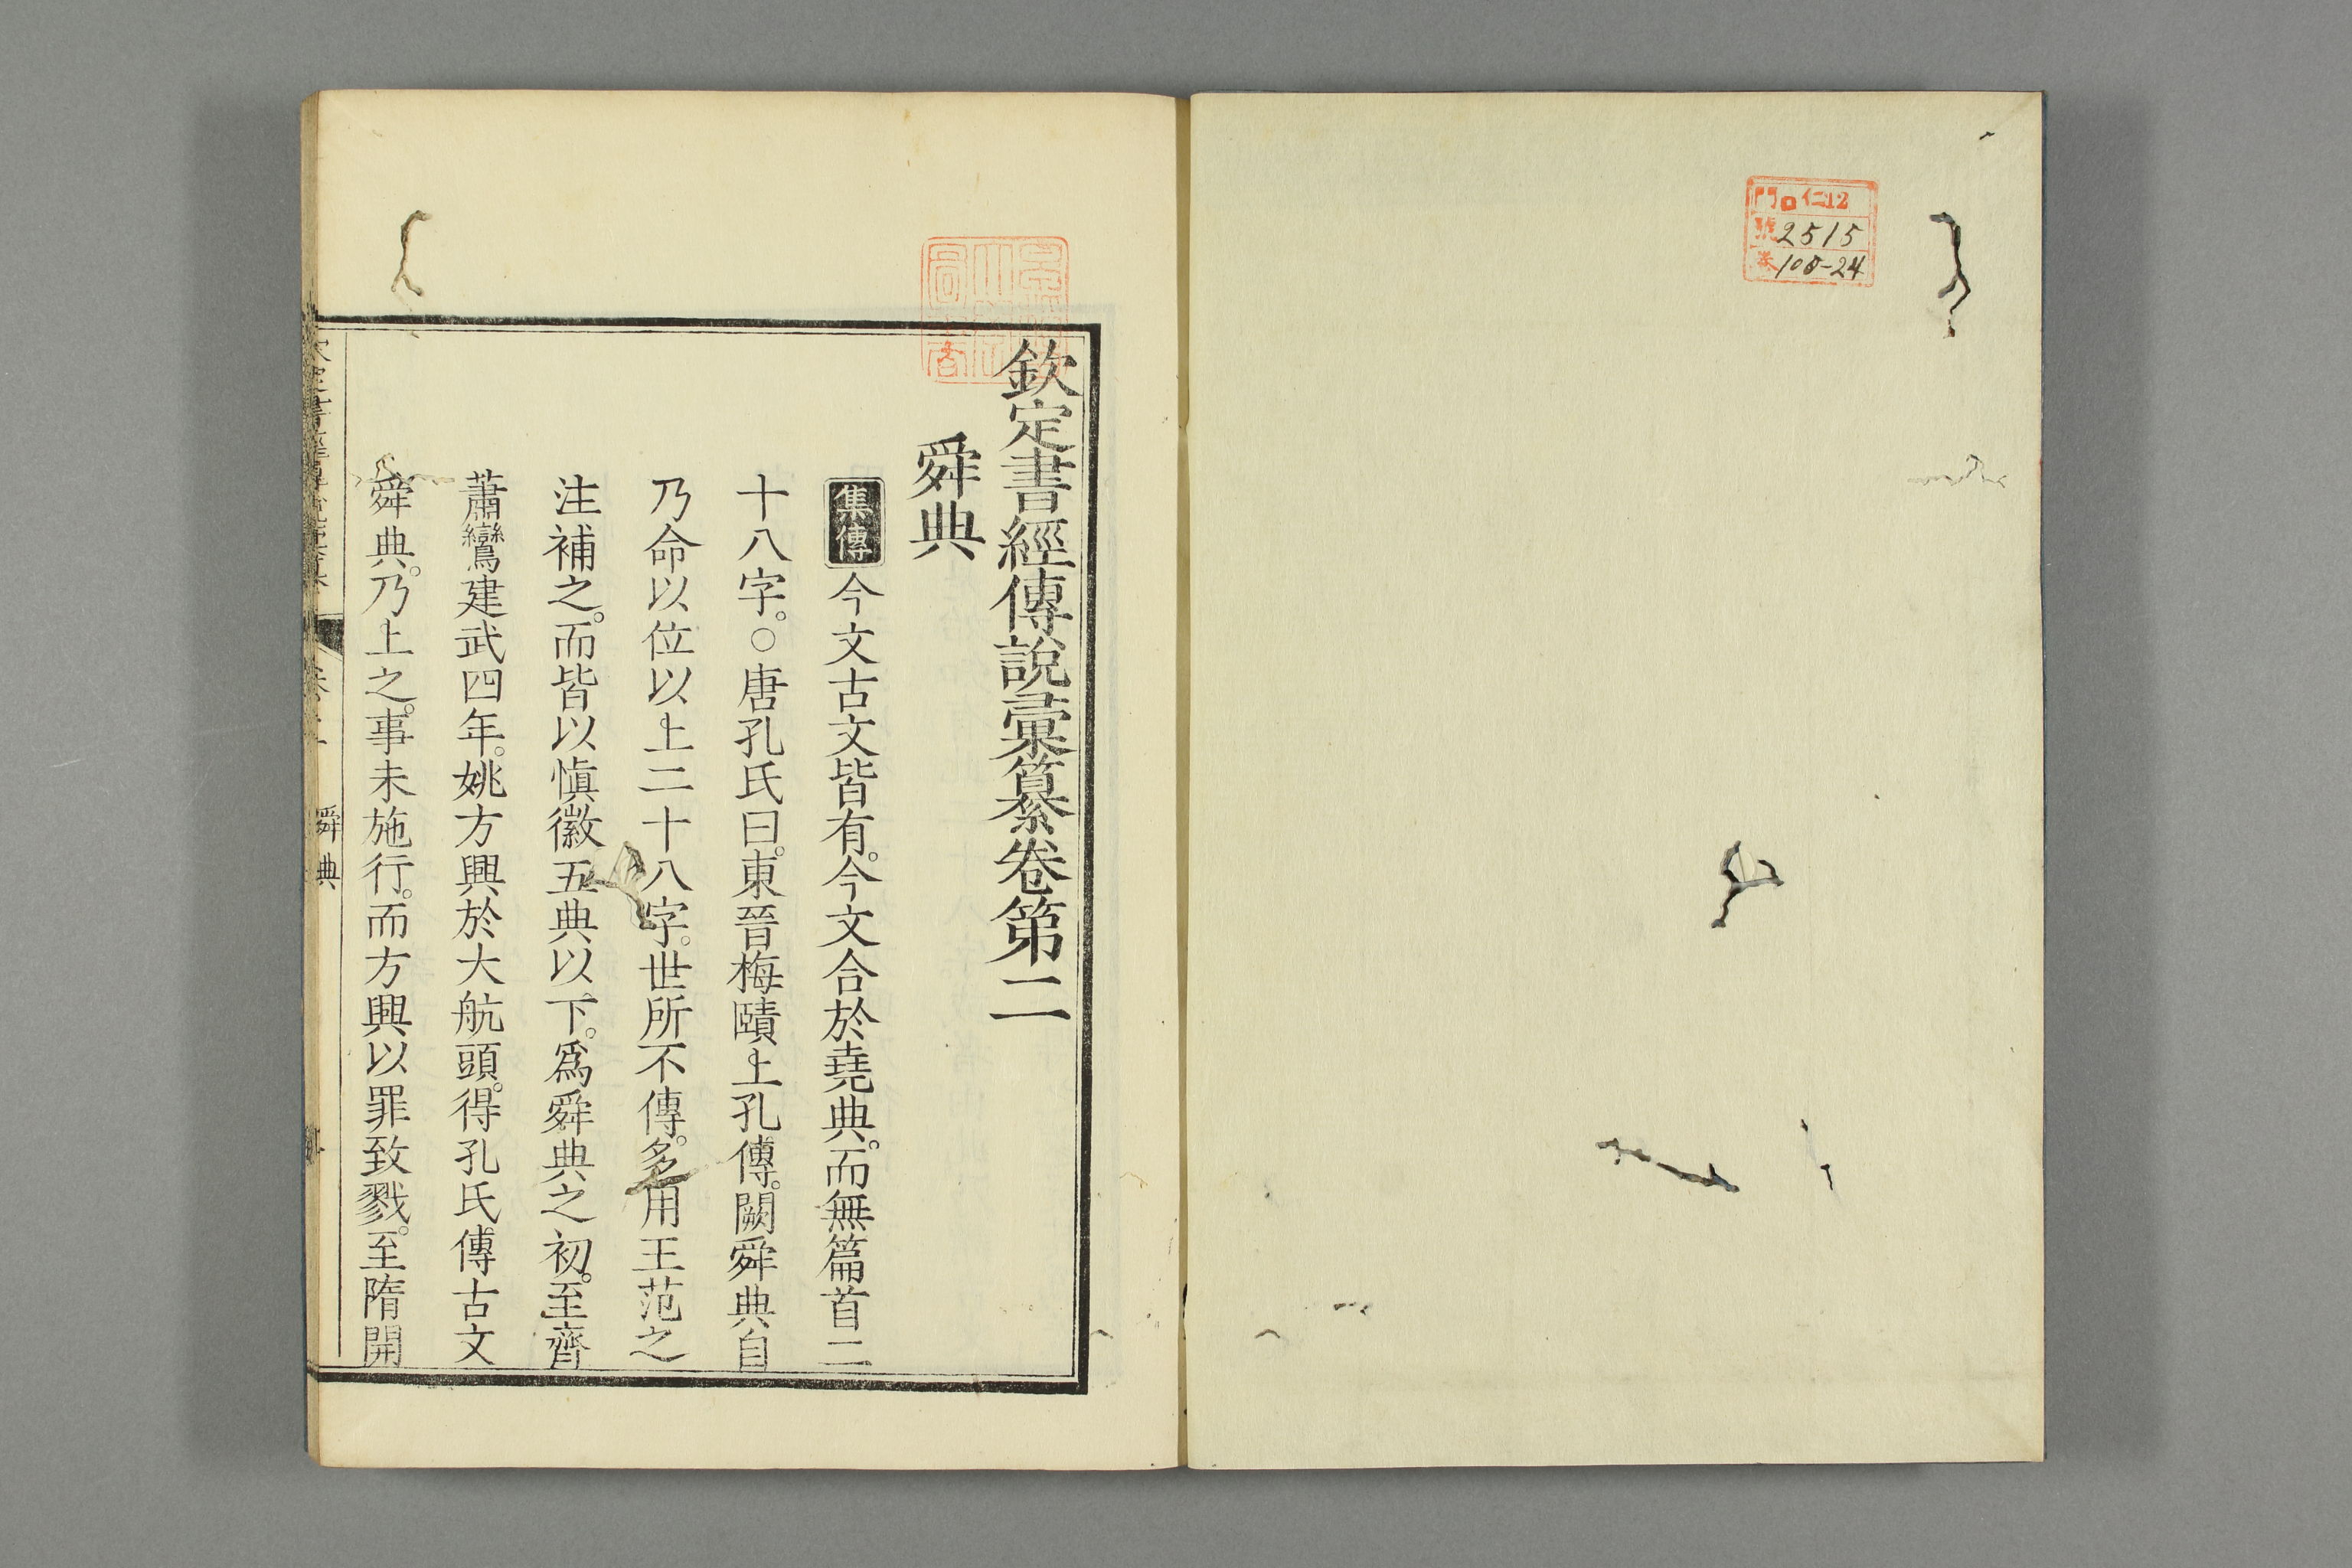 門 仁12
號 2515
卷 100-24
欽定書經傳說彙纂卷第二
舜典
集傳 今文古文皆有。今文合於堯典。而無篇首二
十八字。○唐孔氏曰。東晉梅賾上孔傳。闕舜典自
乃命以位以上二十八字。世所不傳。多用王范之
注補之。而皆以愼徽五典以下。爲舜典之初。至齊
蕭鸞建武四年。姚方興於大航頭。得孔氏傳古文
舜典。乃上之。事未施行。而方興以罪致戮。至隋開
舜典